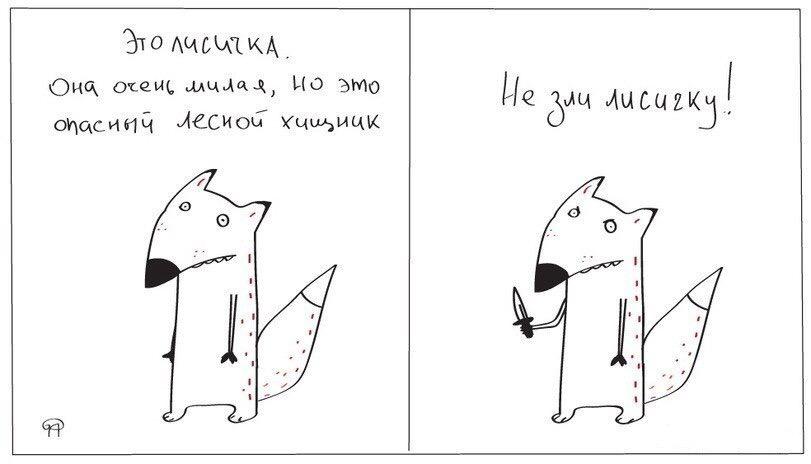 Это лисичка.
Она очень милая, но это
опасный лесной хищник
Не зли лисичку!